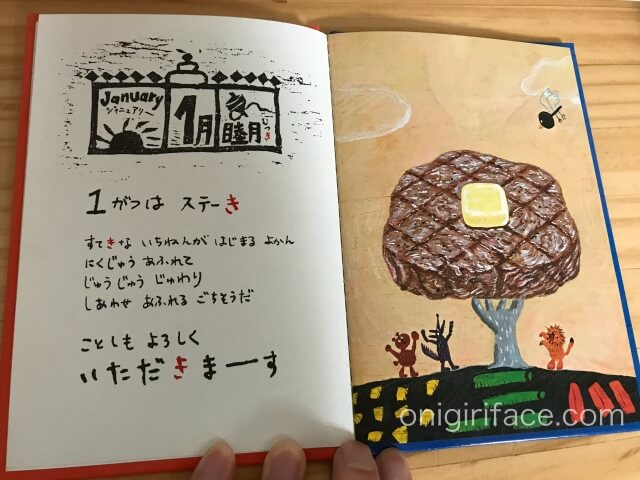 January
ジャニュアリー
1月
睦月
むつき
1がつは ステーき
すてきな いちねんが はじまる よかん
にくじゅう あふれて
じゅうじゅう じゅわり
しあわせ あふれる ごちそうだ
ことしも よろしく
いただきまーす
onigiriface.com